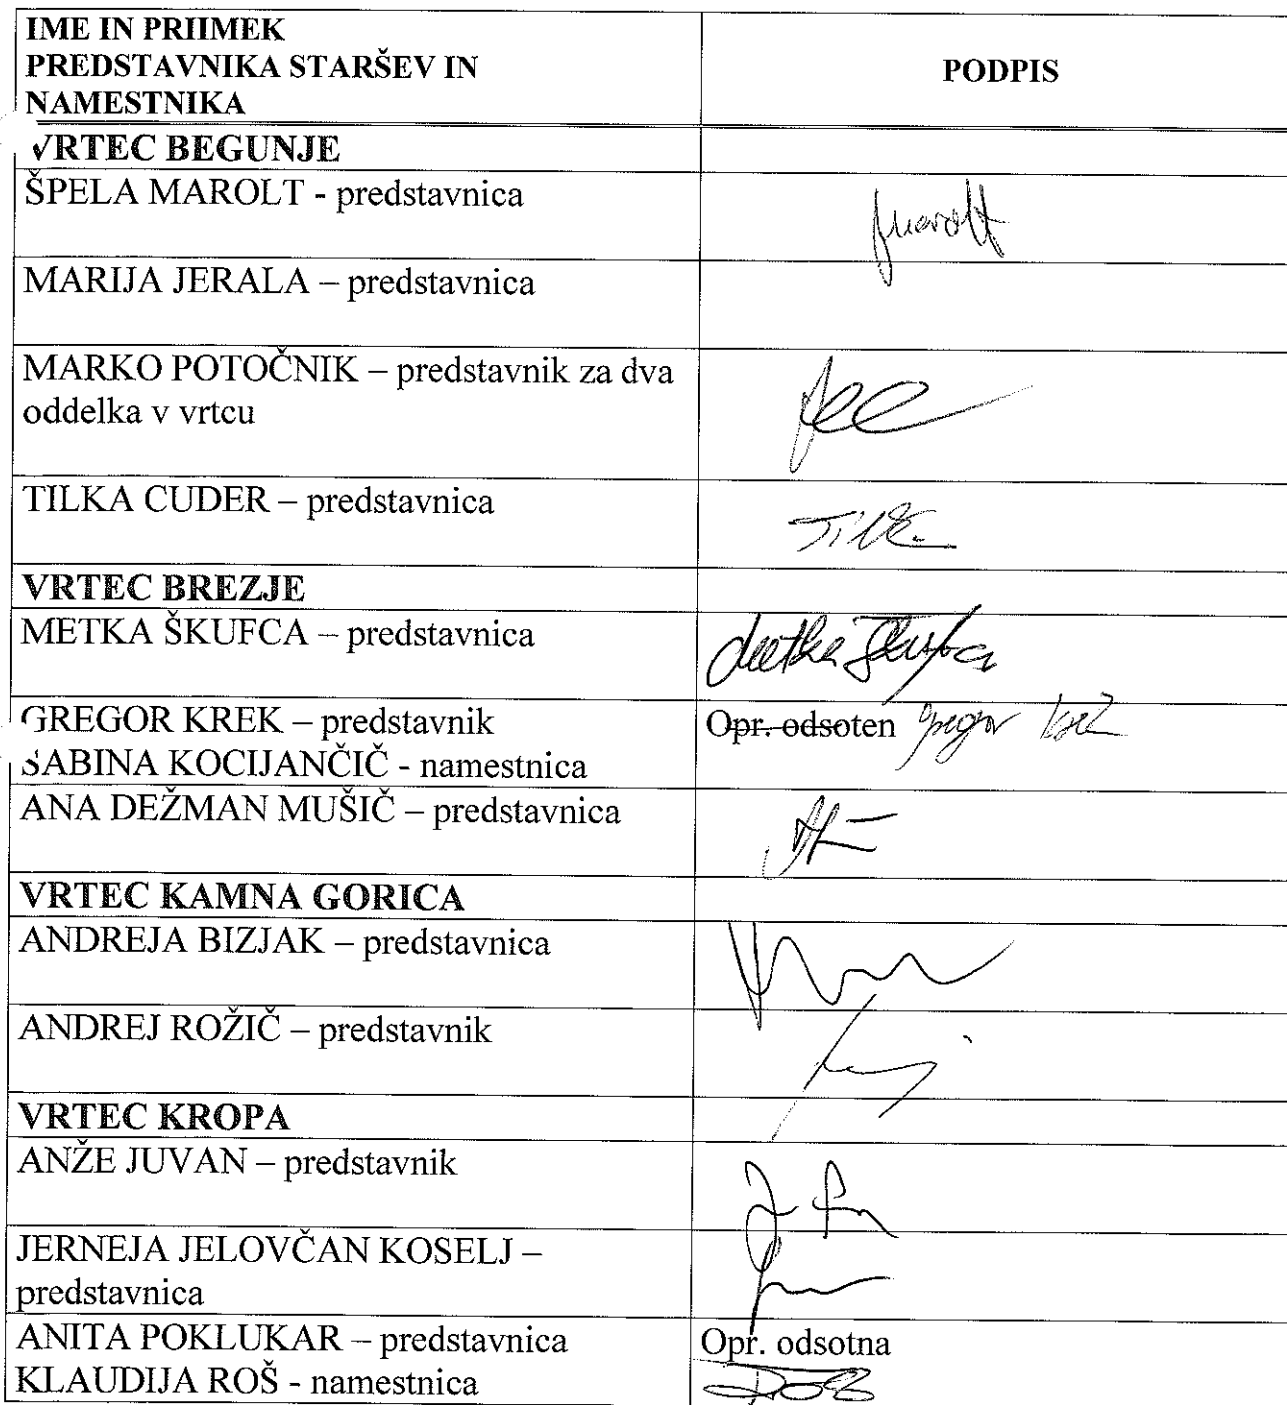 IME IN PRIIMEK
PREDSTAVNIKA STARŠEV IN
NAMESTNIKA
PODPIS
VRTEC BEGUNJE
ŠPELA MAROLT - predstavnica
Marolt
MARIJA JERALA – predstavnica
MARKO POTOČNIK – predstavnik za dva
oddelka v vrtcu
TILKA CUDER – predstavnica
VRTEC BREZJE
METKA ŠKUFCA – predstavnica
Metka Škufca
GREGOR KREK – predstavnik
Opr. odsoten Gregor Krek
SABINA KOCIJANČIČ - namestnica
ANA DEŽMAN MUŠIČ – predstavnica
VRTEC KAMNA GORICA
ANDREJA BIZJAK – predstavnica
ANDREJ ROŽIČ – predstavnik
VRTEC KROPA
ANŽE JUVAN – predstavnik
JERNEJA JELOVČAN KOSELJ –
predstavnica
ANITA POKLUKAR – predstavnica
Opr. odsotna
KLAUDIJA ROŠ - namestnica